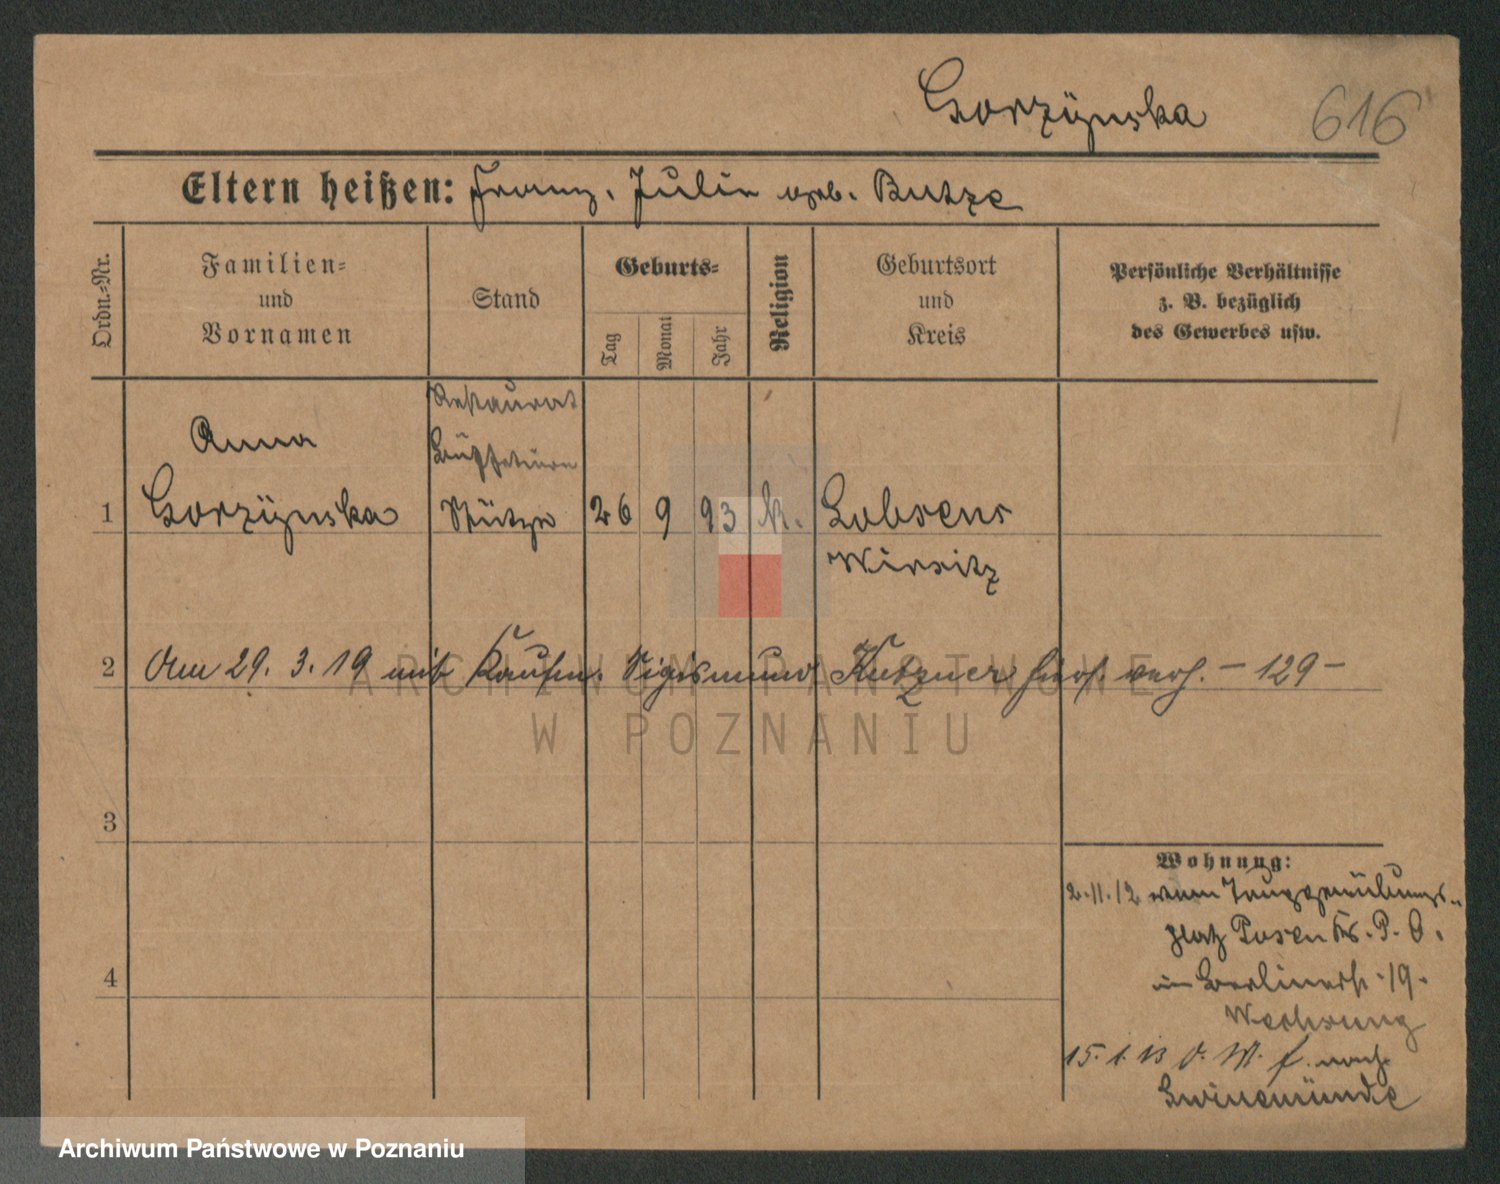 Gorzÿnska 616
Eltern heißen: Franz. Julie geb. Butze
Ordn.-Nr.
Familien- und Vornamen
Stand
Geburts-
Tag
Monat
Jahr
Religion
Geburtsort und Kreis
Persönliche Verhältnisse
z. B. bezüglich
des Gewerbes usw.
Restaurat
Anna
Büffetiere
1 Gorzÿnska Stütze 26 9 93 K. Lobsens
Wirsitz
2 Am 29. 3. 19 mit Kaufm. Sigismund Kutzner hier verh. – 129 –
3
Wohnung:
2.11.12 vom Truppenübungs-
platz Posen Kr. P. O.
4
in Berlinerstr. 19.
Wohnung
15. 1. 13 O. W. f. nach
Swinemünde
ARCHIWUM PAŃSTWOWE
W POZNANIU
Archiwum Państwowe w Poznaniu